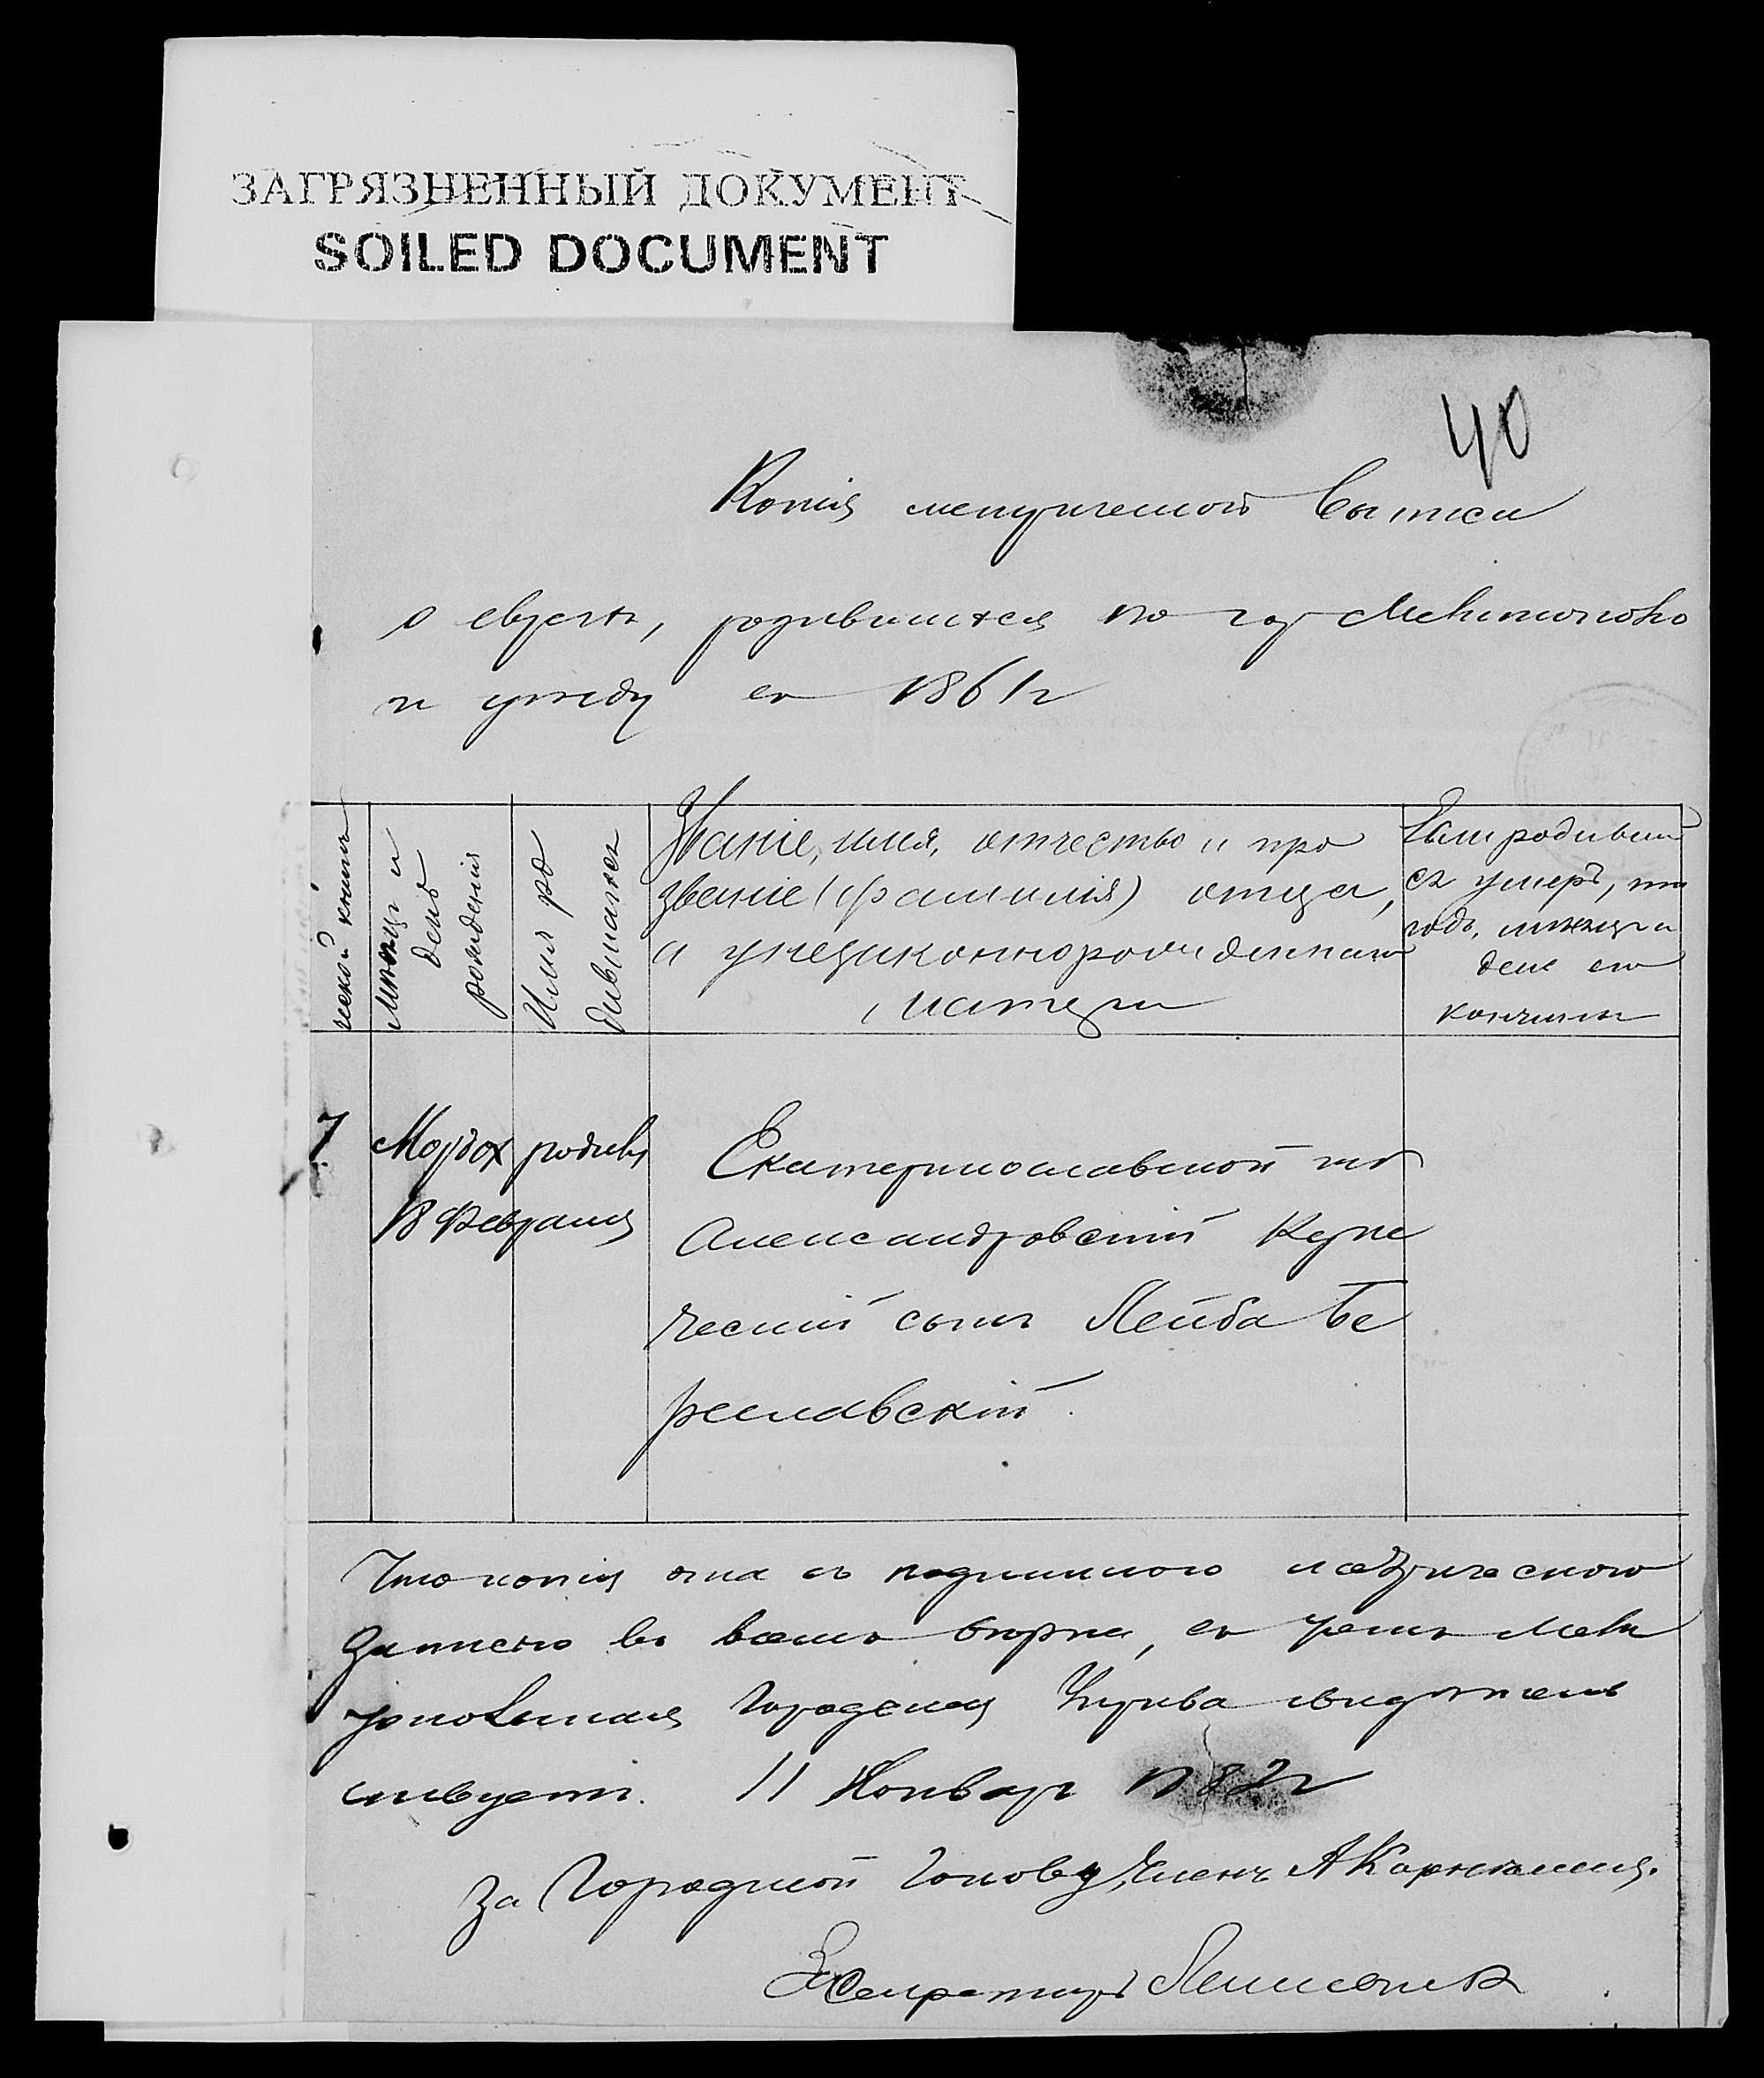 ЗАГРЯЗНЕННЫЙ ДОКУМЕНТ
SOILED DOCUMENT
40
Копія метрической выписи
о евреѣ, родившемся по гор Мелитополю
и уѣзду въ 1861 г
ческой книги
Мѣсяцъ и
день
рожденія
Имя ро
дившагося
Званіе, имя, отчество и про
звание (фамилія) отца,
а у незаконнорожденнаго
матери
Если родивший
ся умеръ, то
годъ, мѣсяцъ и
день его
кончины
7
Мордох родився
18 Февраля
Екатеринославской губ
Александровскій Купе
ческій сынъ Лейба Бе
реславскій.
Что копія эта съ подлинною метрическою
записью во всемъ вѣрна, въ томъ Мели
топольская Городская Управа свидѣтель
ствуетъ. 11 Января 1882 г
За Городской Голову, Членъ А
Секретарь